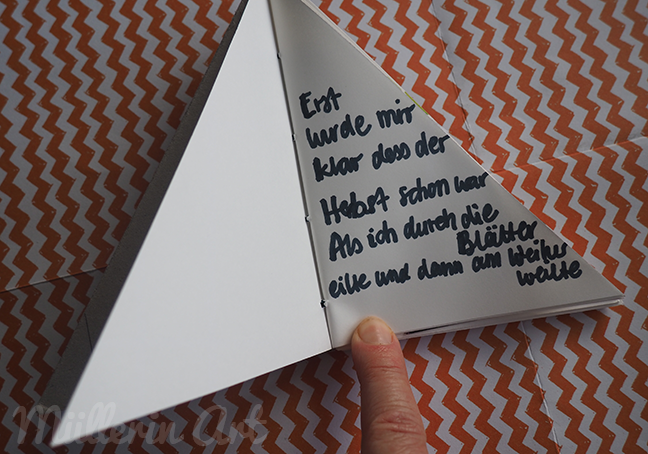 Erst
wurde mir
klar dass der
Herbst schon war
Als ich durch die
Blätter
eilte und dann am Weiher
weilte
Müllerin Art